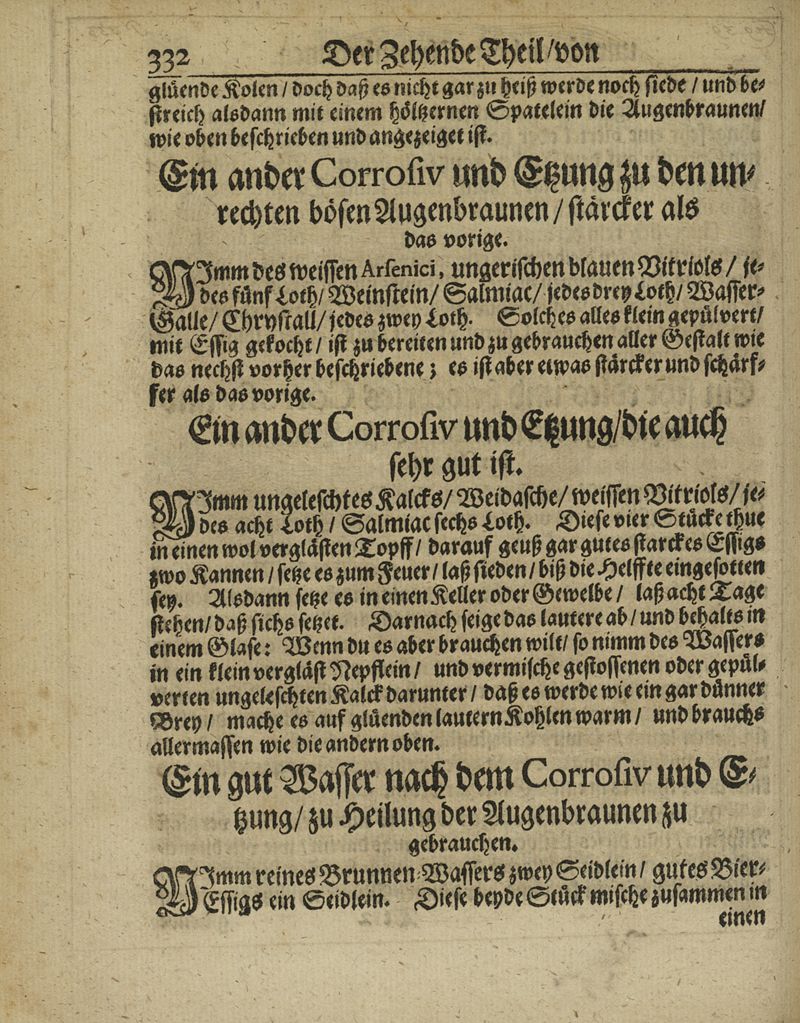 332 Der Zehende Theil/von
glüende Kolen / doch daß es nicht gar zu heiß werde noch siede / und be-
streich alsdann mit einem höltzernen Spatelein die Augenbraunen/
wie oben beschrieben und angezeiget ist.
Ein ander Corrosiv und Etzung zu den un-
rechten bösen Augenbraunen / stärcker als
das vorige.
NImm des weissen Arsenici, ungerischen blauen Vitriols / je-
des fünf Loth/ Weinstein/ Salmiac/ jedes drey Loth/ Wasser-
Galle/ Chrystall/ jedes zwey Loth. Solches alles klein gepülvert/
mit Essig gekocht / ist zu bereiten und zu gebrauchen aller Gestalt wie
das nechst vorher beschriebene; es ist aber etwas stärcker und schärf-
fer als das vorige.
Ein ander Corrosiv und Etzung/die auch
sehr gut ist.
NImm ungeleschtes Kalcks/ Weidasche/ weissen Vitriols/ je-
des acht Loth / Salmiac sechs Loth. Diese vier Stücke thue
in einen wol verglästen Topff/ darauf geuß gar gutes starckes Essigs
zwo Kannen / setze es zum Feuer / laß sieden / biß die Helffte eingesotten
sey. Alsdann setze es in einen Keller oder Gewelbe / laß acht Tage
stehen/ daß sichs setzet. Darnach seige das lautere ab / und behalts in
einem Glase: Wenn du es aber brauchen wilt/ so nimm des Wassers
in ein klein vergläst Nepflein / und vermische gestossenen oder gepül-
verten ungeleschten Kalck darunter / daß es werde wie ein gar dünner
Brey / mache es auf glüenden lautern Kohlen warm / und brauchs
allermassen wie die andern oben.
Ein gut Wasser nach dem Corrosiv und E-
tzung/ zu Heilung der Augenbraunen zu
gebrauchen.
NImm reines Brunnen-Wassers zwey Seidlein / gutes Bier-
Essigs ein Seidlein. Diese beyde Stück mische zusammen in
einen